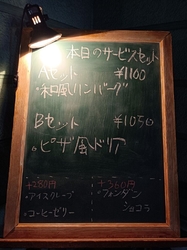 本日のサービスセット
Aセット ¥1100
・和風ハンバーグ
Bセット ¥1050
・ピザ風ドリア
+280円
・アイスクレープ
・コーヒーゼリー
+560円
・フォンダン
ショコラ